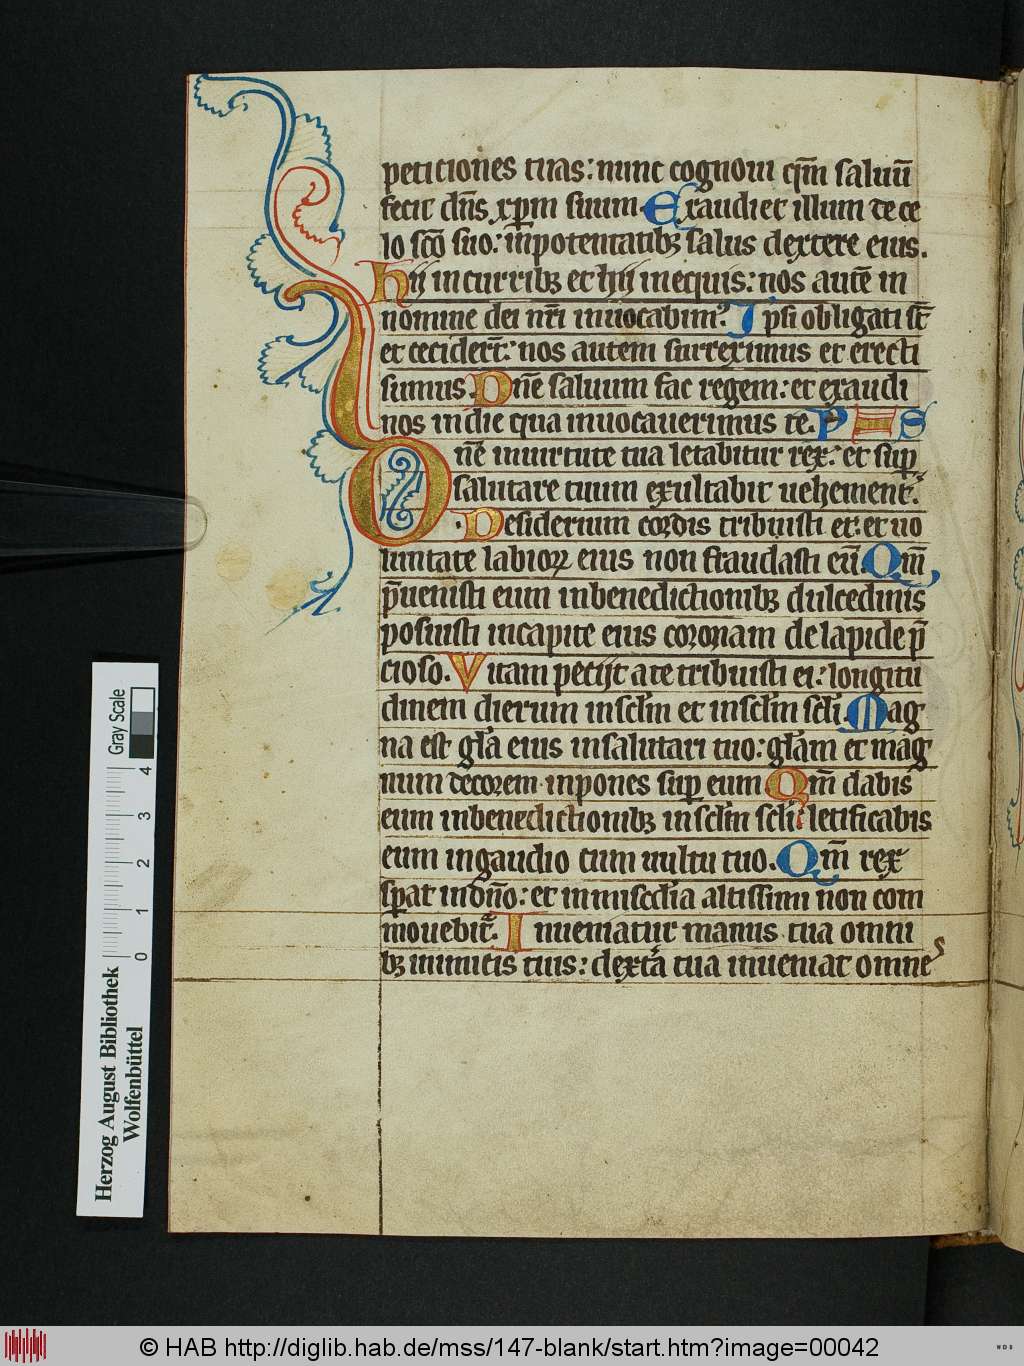 peticiones tuas: nunc cognoui qm̄ saluū
fecit dn̄s xp̄m suum. Exaudiet illum de ce
lo sc̄o suo: in potentatibꝫ salus dextere eius.
Hij in curribꝫ et hij in equis: nos autē in
nomine dei nr̄i inuocabimꝰ. Ipsi obligati st̄
et cecider̄t: nos autem surreximus et erecti
sumus. Dn̄e saluum fac regem: et exaudi
nos in die qua inuocauerimus te. P S
Dn̄e in uirtute tua letabitur rex: et sup̄
salutare tuum exultabit uehement̄.
Desiderium cordis tribuisti ei: et uo
luntate labioꝝ eius non fraudasti eū. Qm̄
p̄uenisti eum in benedictionibꝫ dulcedinis
posuisti in capite eius coronam de lapide p̄
cioso. Vitam petijt a te tribuisti ei: longitu
dinem dierum in sc̄lm et in sc̄lm sc̄li. Mag
na est gl̄a eius in salutari tuo: gl̄am et mag
num decorem inpones sup̄ eum Qm̄ dabis
eum in benedictionibꝫ in sc̄lm sc̄li: letificabis
eum in gaudio cum uultu tuo. Qm̄ rex
sp̄at in dn̄o: et in mis̄cdia altissimi non com
mouebit̄. Inueniatur manus tua omni
bꝫ inimicis tuis: dext̄a tua inueniat omnes
Gray Scale
4 3 2 1 0
Herzog August Bibliothek
Wolfenbüttel
© HAB http://diglib.hab.de/mss/147-blank/start.htm?image=00042